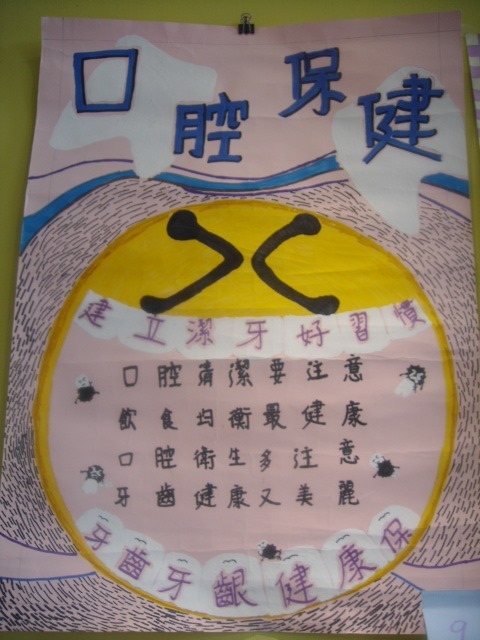 口腔保健
建立潔牙好習慣
口腔清潔要注意
飲食均衡最健康
口腔衛生多注意
牙齒健康又美麗
牙齒牙齦健康保
9